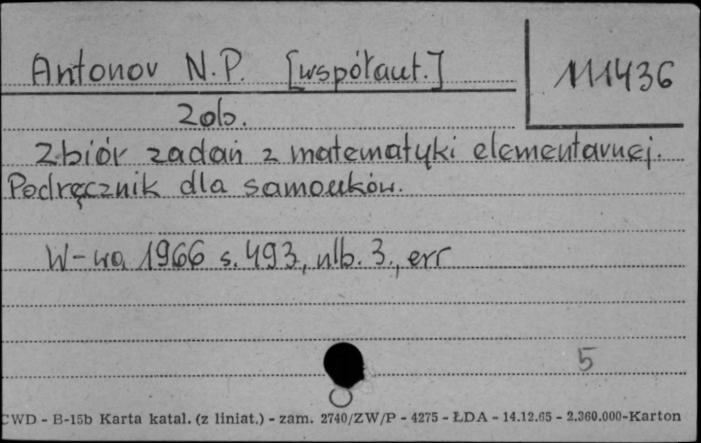 Antonov N.P. [współaut.]
111436
Zob.
Zbiór zadań z matematyki elementarnej.
Podręcznik dla samouków.
W-wa 1966 s. 493, nlb. 3., err
5
CWD - B-15b Karta katal. (z liniat.) - zam. 2740/ZW/P - 4275 - ŁDA - 14.12.65 - 2.360.000-Karton